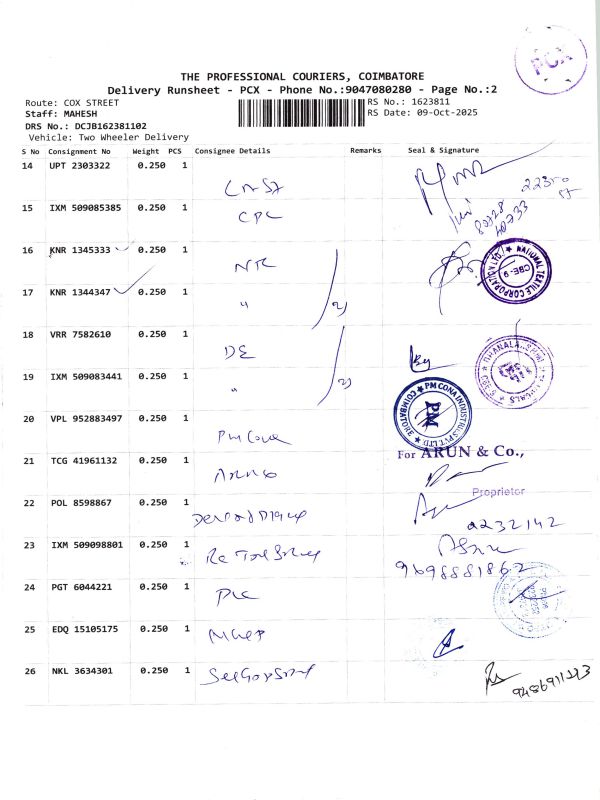 PCX
THE PROFESSIONAL COURIERS, COIMBATORE
Delivery Runsheet - PCX - Phone No.:9047080280 - Page No.:2
Route: COX STREET
RS No.: 1623811
Staff: MAHESH
RS Date: 09-Oct-2025
DRS No.: DCJB162381102
Vehicle: Two Wheeler Delivery
S No Consignment No Weight PCS Consignee Details Remarks Seal & Signature
14 UPT 2303322 0.250 1
15 IXM 509085385 0.250 1
CPC
16 KNR 1345333 0.250 1
NTC
NATIONAL TEXTILE CORPORATION LTD. CBE-9
17 KNR 1344347 0.250 1
" 2)
18 VRR 7582610 0.250 1
DE
19 IXM 509083441 0.250 1
" 2)
20 VPL 952883497 0.250 1
PM CONA INDUSTRIES PVT LTD COIMBATORE PM
Pm Cona
For ARUN & Co.,
21 TCG 41961132 0.250 1
Proprietor
22 POL 8598867 0.250 1
2232142
23 IXM 509098801 0.250 1
9698881862
24 PGT 6044221 0.250 1
25 EDQ 15105175 0.250 1
26 NKL 3634301 0.250 1